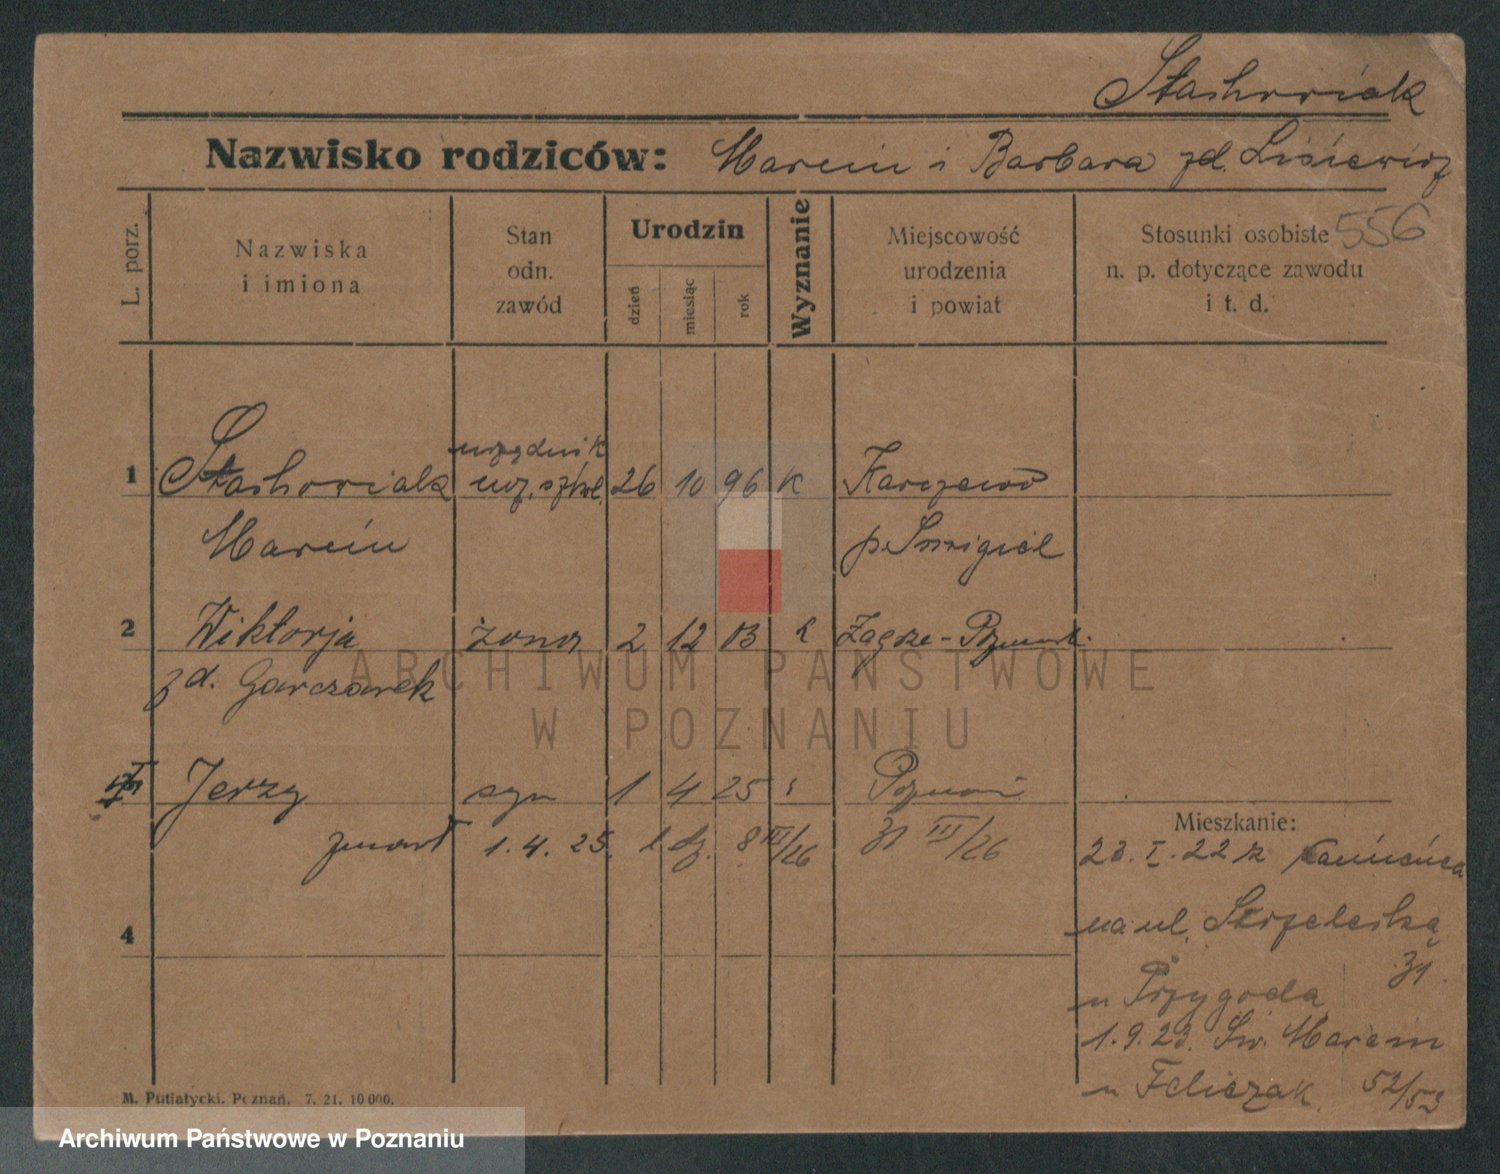 Stachowiak
Nazwisko rodziców: Marcin i Barbara zd. Lisiewicz
L. porz.
Nazwiska
i imiona
Stan
odn.
zawód
Urodzin
dzień
miesiąc
rok
Wyznanie
Miejscowość
urodzenia
i powiat
Stosunki osobiste 556
n. p. dotyczące zawodu
i t. d.
urzędnik
1 Stachowiak 26 10 96 K Karczewo
Marcin p. Śmigiel
2 Wiktorja żona 2 12 03
zd. Garczarek
Jerzy syn 1 4 25 Poznań
zmarł 1.4.25. 8 III/26 31 III/26
4
Mieszkanie:
23. I. 22 z
na ul. Strzelecką
31.
u Przygoda
1.9.23. Św. Marcin
u Feliczak 52/53
M. Putiatycki. Poznań. 7. 21. 10 000.
ARCHIWUM PAŃSTWOWE
W POZNANIU
Archiwum Państwowe w Poznaniu